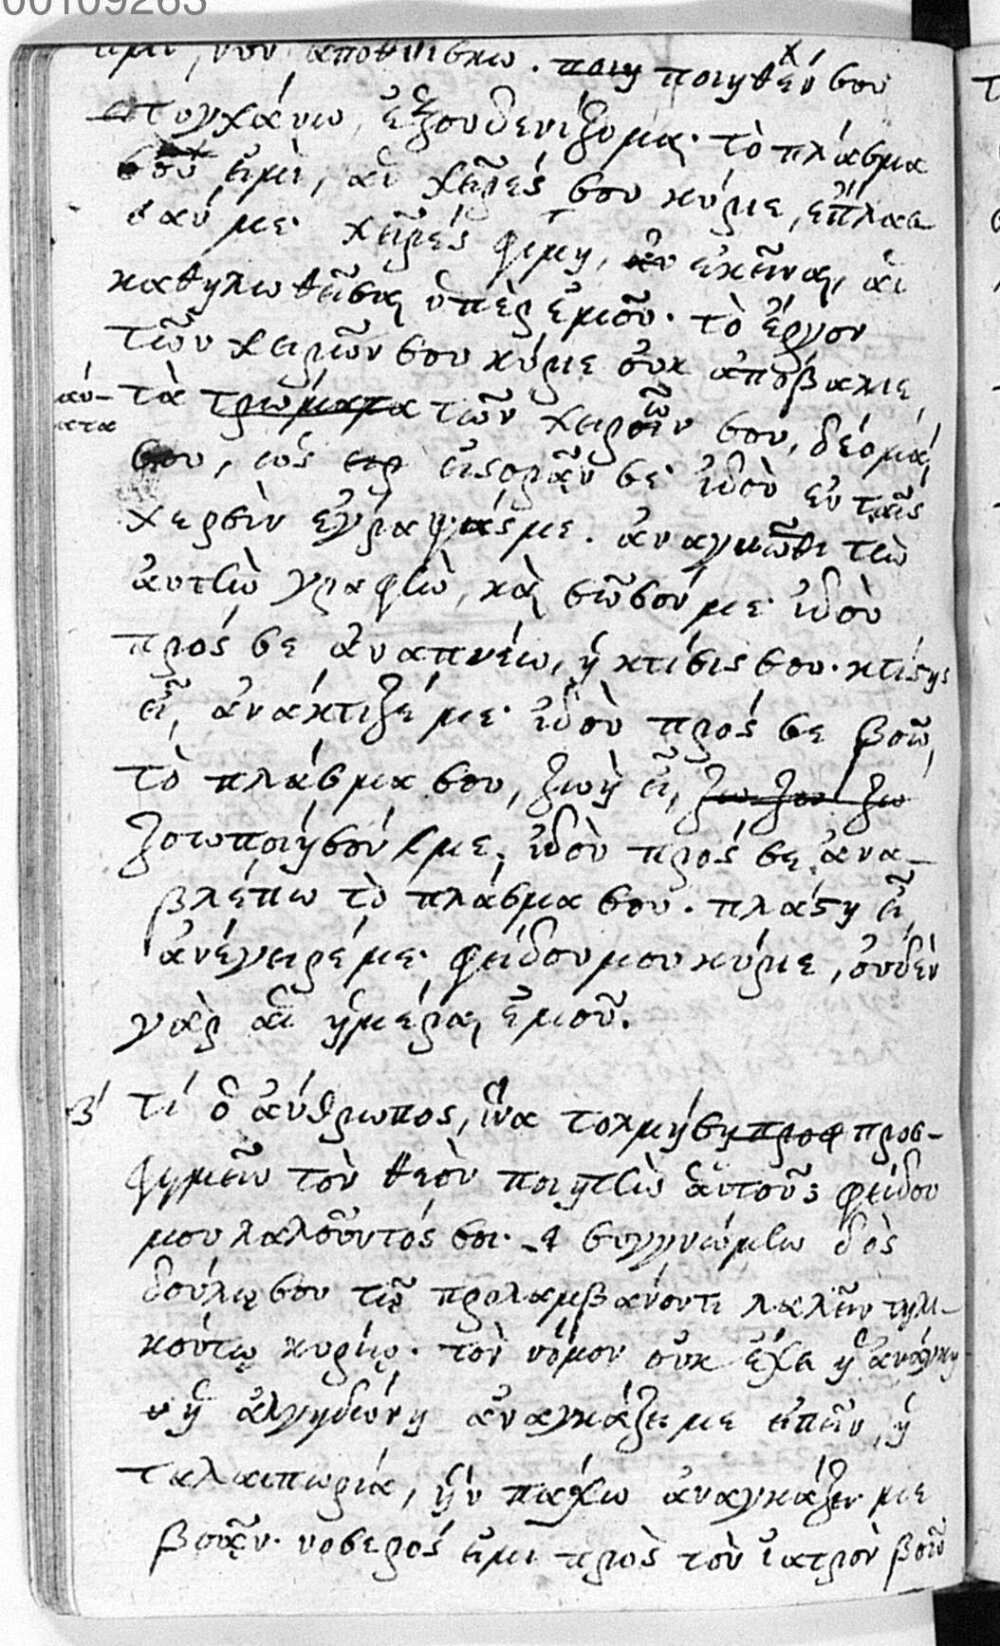 00109263
εἰμὶ, νῦν ἀποθνήσκω. ποιη ποιηθέν σου
τυγχάνω, ἐξουδενίζομαι· τὸ πλάσμα
σοῦ εἰμὶ, αἱ χεῖρές σου κύριε, ἔπλασ-
σάν με· χεῖρές φημι, ἐκεῖναι, αἱ
καθηλωθεῖσαι ὑπὲρ ἐμοῦ. τὸ ἔργον
τῶν χειρῶν σου κύριε οὐκ ἀποβαλεῖς
τὰ τρώματα τῶν χειρῶν σου, δέομαί
σου, εἰσορᾶν σε· ἰδοὺ ἐν ταῖς
χερσὶν ἔγραψάς με. ἀναγνῶθι τὴν
αὐτὴν γραφὴν, καὶ σῶσόν με· ἰδοὺ
πρός σε ἀναπνέω, ἡ κτίσις σου. κτίστης
εἶ, ἀνάκτιξέ με· ἰδοὺ πρός σε βοῶ,
τὸ πλάσμα σου, ζωὴ εἶ, ζω ζοω ζω
ζοωποίησόν με, ἰδοὺ πρός σε ἀνα-
βλέπω τὸ πλάσμα σου. πλάστη εἶ,
ἀνέγειρέ με· φείδου μου κύριε, οὐδὲν
γὰρ αἱ ἡμέραι ἐμοῦ.
β' τί ὁ ἄνθρωπος, ἵνα τολμήσῃ προσ προσ-
φημεῖν τὸν θεὸν ποιητὴν ἑαυτοῦ; φείδου
μου λαλοῦντός σοι. συγγνώμην δὸς
δούλῳ σου τῷ προλαμβάνοντι λαλεῖν τηλι-
κούτῳ κυρίῳ. τὸν νόμον οὐκ ἔχει ἡ ἀνάγκη
ἡ ἀλγηδών ἀναγκάζει με εἰπεῖν, ἡ
ταλαιπωρία, ἣν πάσχω ἀναγκάζει με
βοᾷν. νοσερός εἰμι πρὸς τὸν ἰατρὸν βοῶ